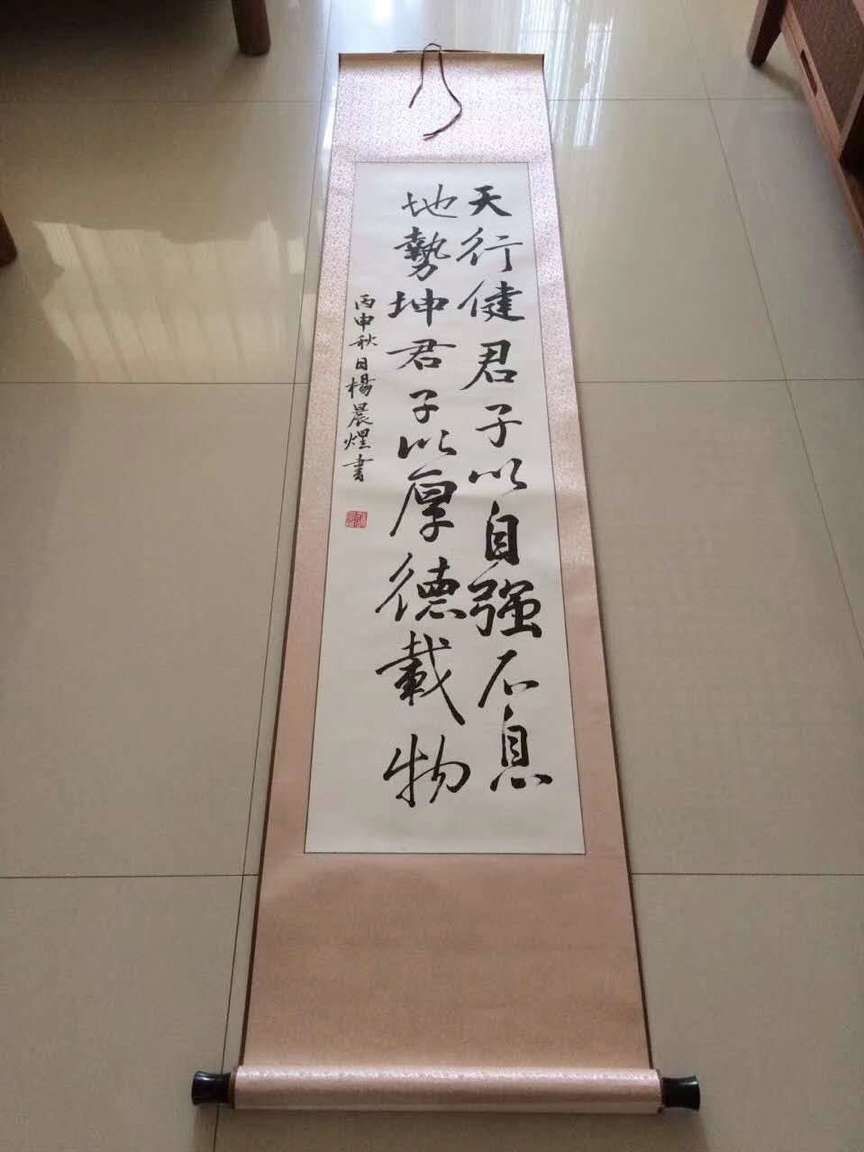 天行健君子以自強不息
地勢坤君子以厚德載物
丙申秋日楊晨煜書